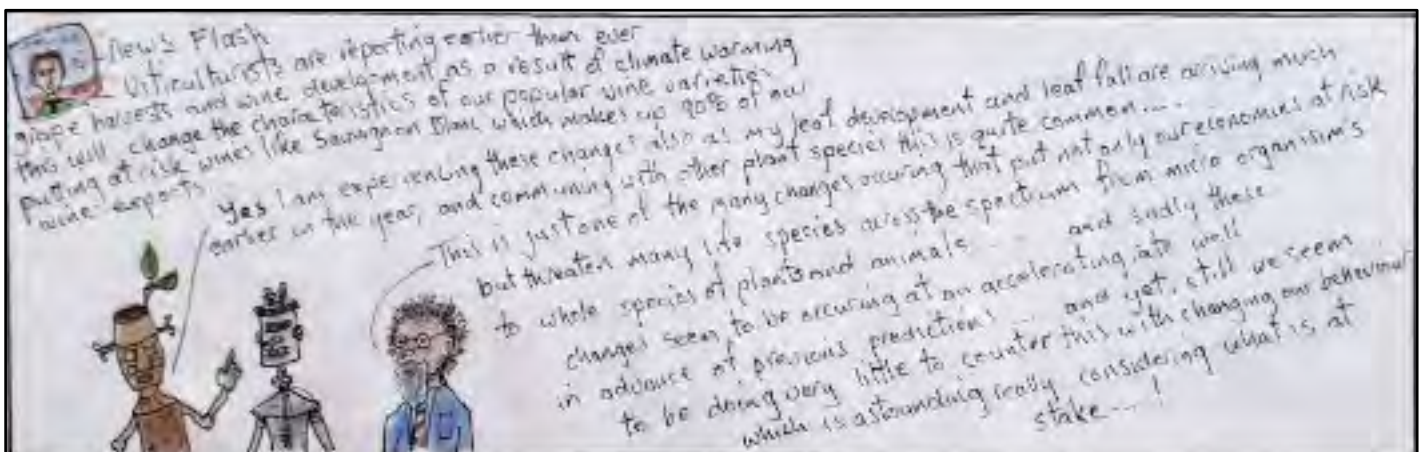 News Flash
Viticulturists are reporting earlier than ever
grape harvests and wine development as a result of climate warming
this will change the characteristics of our popular wine varieties
putting at risk wines like Sauvignon Blanc which makes up 90% of our
wine exports.
Yes I am experiencing these changes also as my leaf development and leaf fall are arriving much
earlier in the year, and communing with other plant species this is quite common....
This is just one of the many changes occuring that put not only our economies at risk
but threaten many life species across the spectrum from micro organisim's
to whole species of plants and animals.... and sadly these
changes seem to be occuring at an accelerating rate well
in advance of previous predictions ... and yet, still we seem
to be doing very little to counter this with changing our behaviour
which is astounding really considering what is at
stake...!